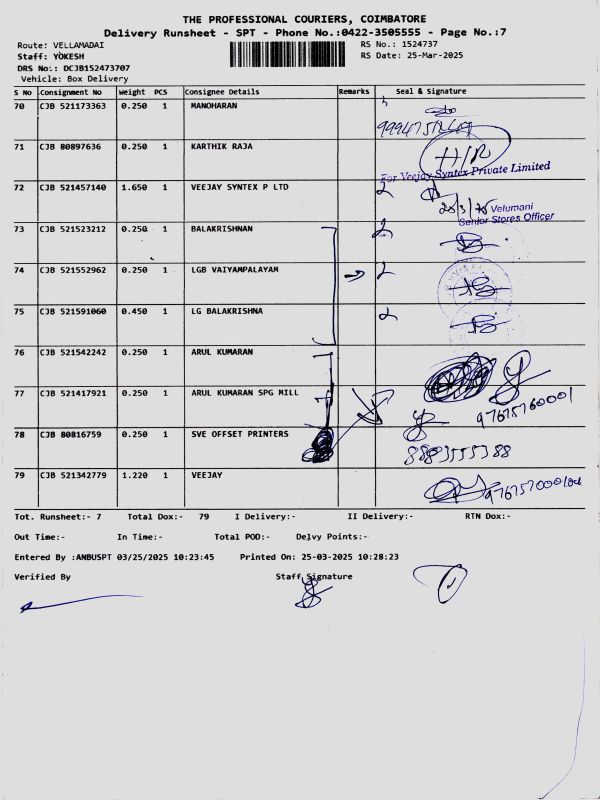 THE PROFESSIONAL COURIERS, COIMBATORE
Delivery Runsheet - SPT - Phone No.:0422-3505555 - Page No.:7
Route: VELLAMADAI RS No.: 1524737
Staff: YOKESH RS Date: 25-Mar-2025
DRS No.: DCJB152473707
Vehicle: Box Delivery
S No Consignment No Weight PCS Consignee Details Remarks Seal & Signature
70 CJB 521173363 0.250 1 MANOHARAN
71 CJB 80897636 0.250 1 KARTHIK RAJA H/R
For Veejay Syntex Private Limited
72 CJB 521457140 1.650 1 VEEJAY SYNTEX P LTD 2
Velumani
Senior Stores Officer
73 CJB 521523212 0.250 1 BALAKRISHNAN 2
74 CJB 521552962 0.250 1 LGB VAIYAMPALAYAM 2
75 CJB 521591060 0.450 1 LG BALAKRISHNA 2
76 CJB 521542242 0.250 1 ARUL KUMARAN
77 CJB 521417921 0.250 1 ARUL KUMARAN SPG MILL 97675760001
78 CJB 80816759 0.250 1 SVE OFFSET PRINTERS 8883555388
79 CJB 521342779 1.220 1 VEEJAY
Tot. Runsheet:- 7 Total Dox:- 79 I Delivery:- II Delivery:- RTN Dox:-
Out Time:- In Time:- Total POD:- Delvy Points:-
Entered By :ANBUSPT 03/25/2025 10:23:45 Printed On: 25-03-2025 10:28:23
Verified By Staff Signature